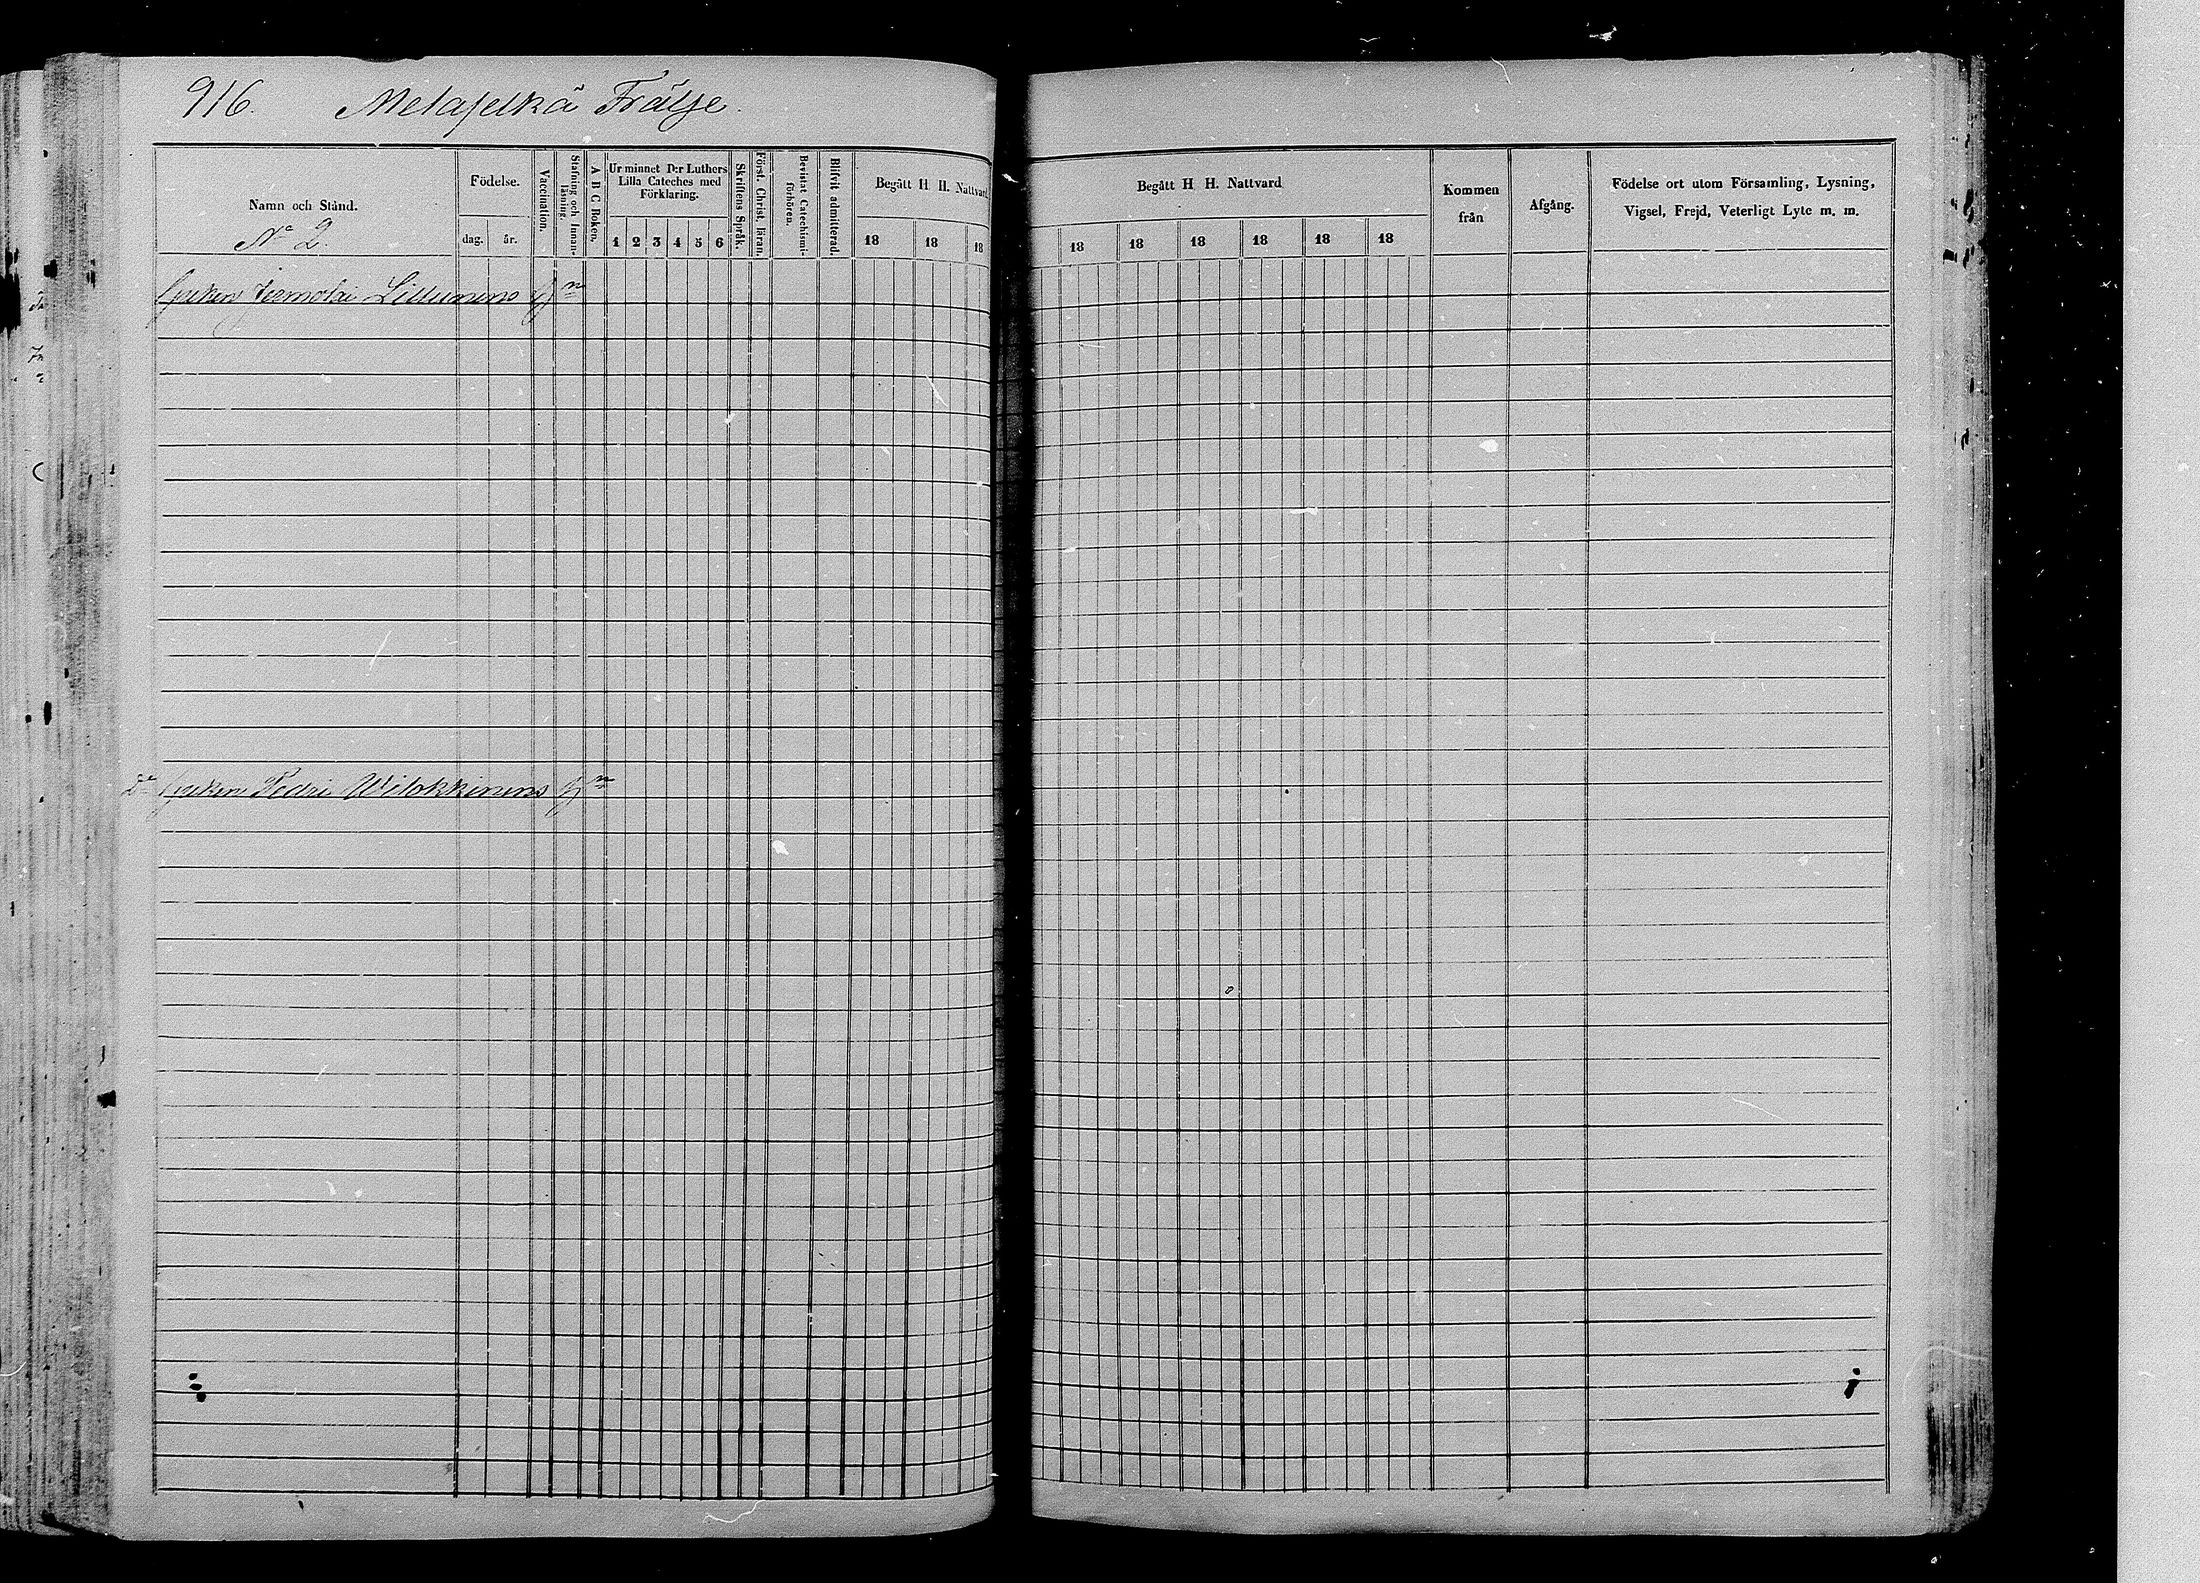 916. Metäselkä Frälse.
Namn och Stånd.
No 2.
Födelse.
dag. år.
Vaccination.
Stafning och Innan-
läsning.
A B C Boken.
Ur minnet D:r Luthers
Lilla Cateches med
Förklaring.
1 2 3 4 5 6
Skriftens Språk.
Först. Christ. läran.
Bevistat Catechismi-
förhören.
Blifvit admitterad.
Begått H H. Nattvard
18 18 18
Begått H H. Nattvard
18 18 18 18 18 18
Kommen
från
Afgång.
Födelse ort utom Församling, Lysning,
Vigsel, Frejd, Veterligt Lyte m. m.
Ryeken Jermolai Lillunens
Ryeken Pedri Wilokkinens